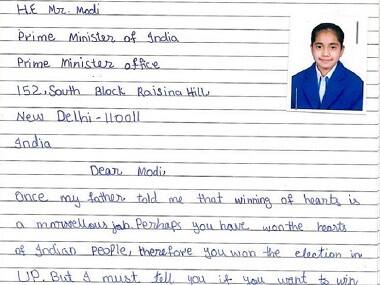 HE Mr. Modi
Prime Minister of India
Prime Minister office
152, South Block Raisina Hill,
New Delhi-110011
India
Dear Modi,
Once my father told me that winning of hearts is
a marvellous job. Perhaps you have won the hearts
of Indian People, therefore you won the election in
UP. But I must tell you if you want to win